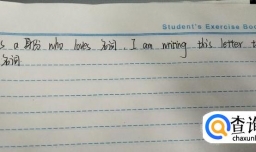 Student's Exercise Boo
s a 身份 who loves 名词, I am writing this letter t
名词
查询
chaxunl